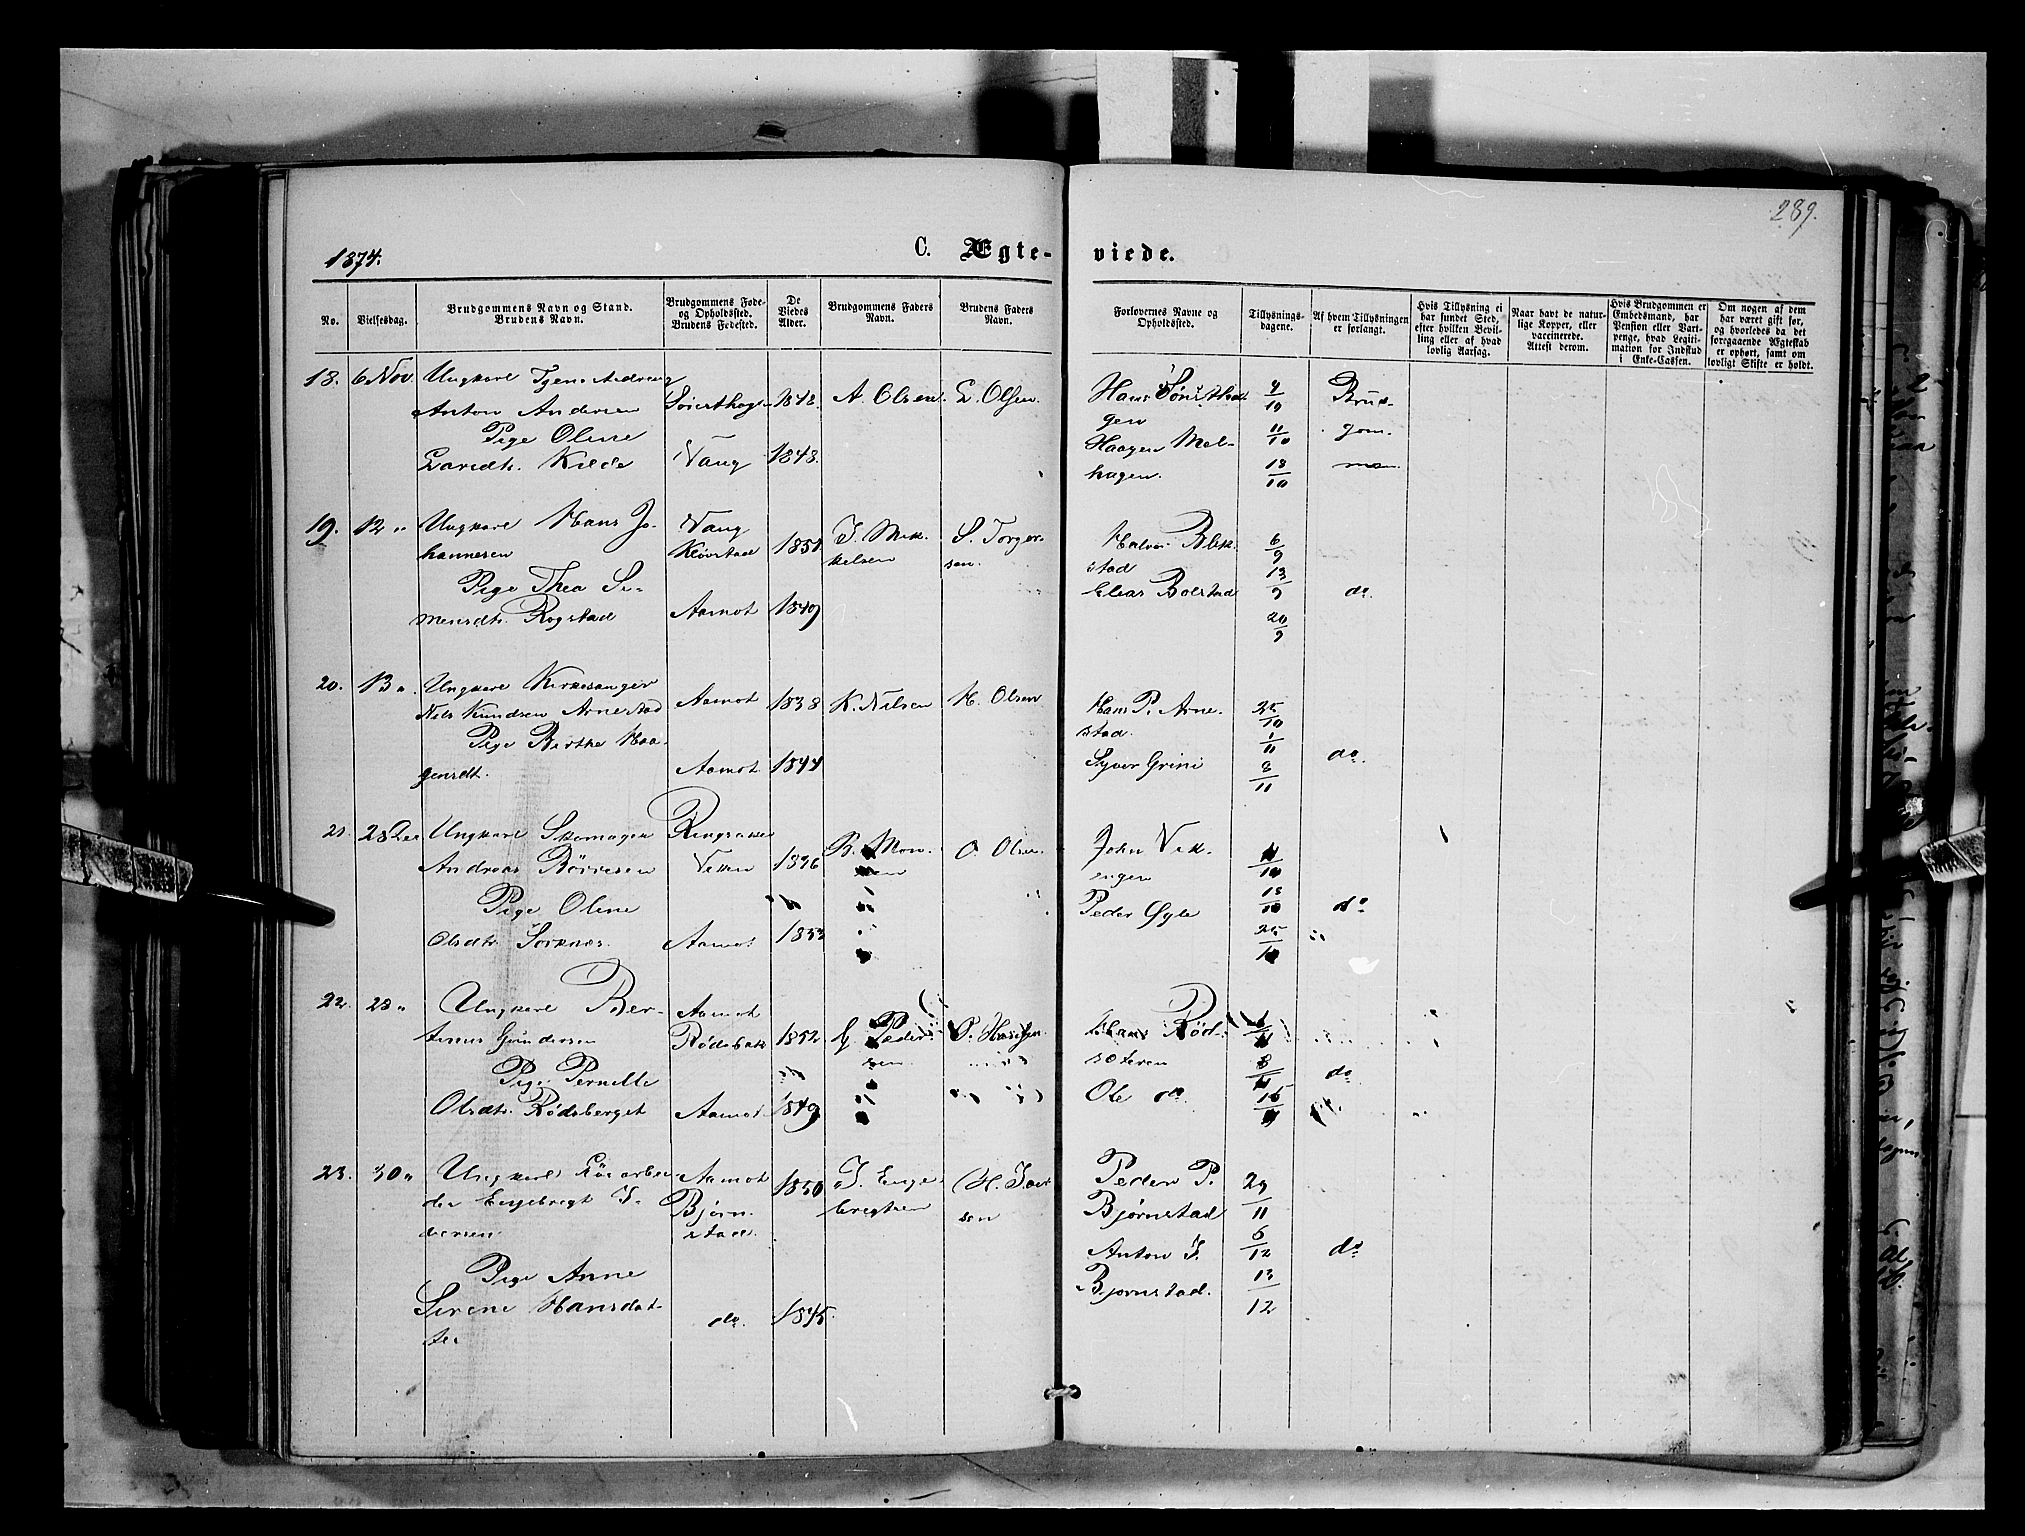 289.
1874.
C. Ægte-
viede.
No.
Vielsesdag.
Brudgommens Navn og Stand.
Brudens Navn.
Brudgommens Føde-
og Opholdssted.
Brudens Fødested.
De
Viedes
Alder.
Brudgommens Faders
Navn.
Brudens Faders
Navn.
Forlovernes Navne og
Opholdssted.
Tillysnings-
dagene.
Af hvem Tillysningen
er forlangt.
Hvis Tillysning ei
har fundet Sted,
efter hvilken Bevil-
ling eller af hvad
lovlig Aarsag.
Naar havt de natur-
lige Kopper, eller
vaccinerede.
Attest derom.
Hvis Brudgommen er
Embedsmand, har
Pension eller Vart-
penge, hvad Legiti-
mation for Indskud
i Enke-Cassen.
Om nogen af dem
har været gift før,
og hvorledes da det
foregaaende Ægteskab
er ophørt, samt om
lovligt Skifte er holdt.
18. 6 Nov Ungkarl
Anton Andersen
Pige Olene
Kilde
1848.
Vang 1848.
A. Olsen
L. Olsen.
Hans
gen
Haagen Mel-
hagen.
11/10
18/10
Brud-
gom-
men.
19. 12 " Ungkarl Hans Jo-
hannesen
Pige Thea Si-
mensdt. Rogstad
Vang
Kløvstad 1851
Aamot 1849
J. Mik-
kelsen
S. Torger-
sen.
Halvor Blik-
stad
Elias Bolstad
6/9
13/9
20/9
do.
20. 13 " Ungkarl Kirkesanger
Nils Knudsen Arnestad
Pige Berthe Haa-
gensdt.
Aamot 1838
Aamot 1844
K. Nilsen
H. Olsen
Hans P. Arne-
stad.
Syver Grini
25/10
1/11
8/11
do.
21. 28 Dec Ungkarl Skomager
Andreas
Pige Olene
Olsdtr. Sorknæs.
Ringsaker
1846
Aamot 1853
O. Olsen
John Vik-
engen
Peder Øgle
18/10
25/10
do
22. 28 " Ungkarl Ber-
tinus Gundersen
Pige Pernille
Olsdtr. Rødsberget
Aamot
Rødsbak 1852
Aamot 1849
G. Peder-
sen
Hans Rød-
sæteren
Ole do
8/11
15/11
do
23. 30 " Ungkarl
Engebregt I-
versen
Pige Anne
Sirene Hansdat-
ter
Aamot
Bjørn-
stad.
1850
do. 1845.
I. Enge-
bregtsen
H. Iver-
sen
Peder P.
Bjørnstad
Anton I.
Bjørnstad.
29/11
6/12
13/12
do